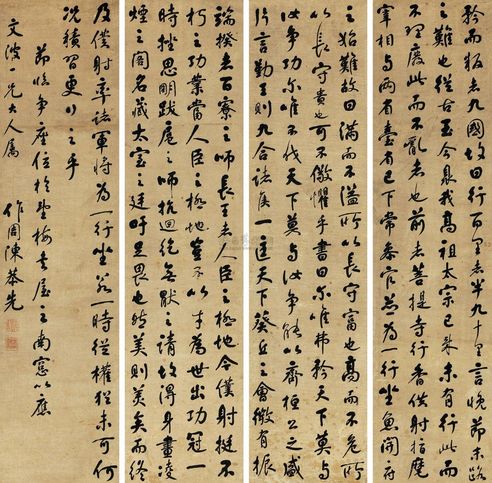 矜而叛者九國故曰行百里者半九十里言晚節末路
之難也從古至今暨我高祖太宗已来未有行此而
不理廢此而不亂者也前者菩提寺行香僕射指麾
宰相與兩省臺省已下常參官並為一行坐魚開府
之始難故曰滿而不溢所以長守富也高而不危所
以長守貴也可不儆懼乎書曰尔唯弗矜天下莫與
汝争功尔唯不伐天下莫與汝争能以齊桓公之盛
片言勤王則九合諸侯一匡天下葵丘之會微有振
端揆者百寮之師長王者人臣之極地今僕射挺不
朽之功業當人臣之極地豈不以才為世出功冠一
時挫思明跋扈之師抗迴紇無猒之請故得身畫凌
煙之閣名藏太室之廷吁足畏也然美則美矣而終
及僕射率諸軍將為一行坐若一時從權猶未可何
况積習更行之乎
節臨争座位於 之南窗以應
文波一兄大人属
作周陳恭先